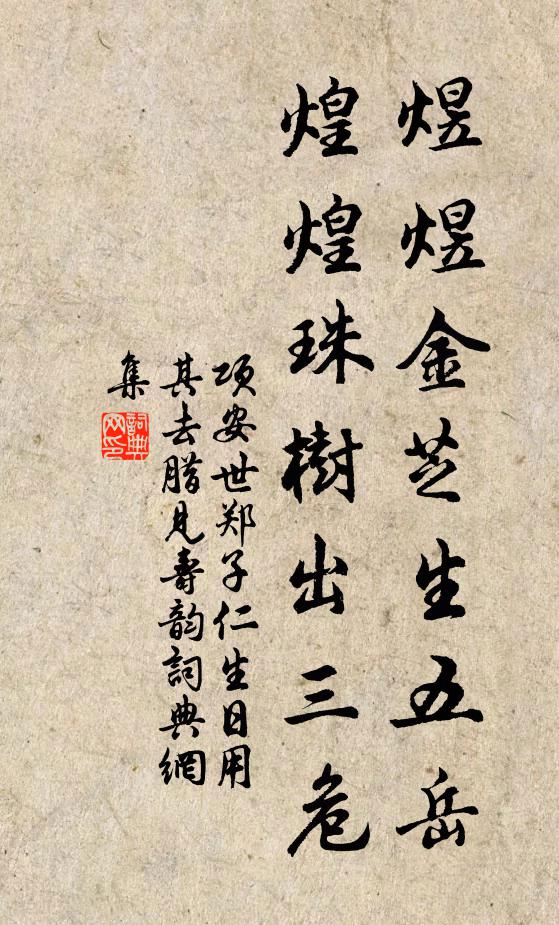 煜煜金芝生五岳
煌煌珠樹出三危
项安世郑子仁生日用
其去腊見壽韵詞典網
集
詞典
网印